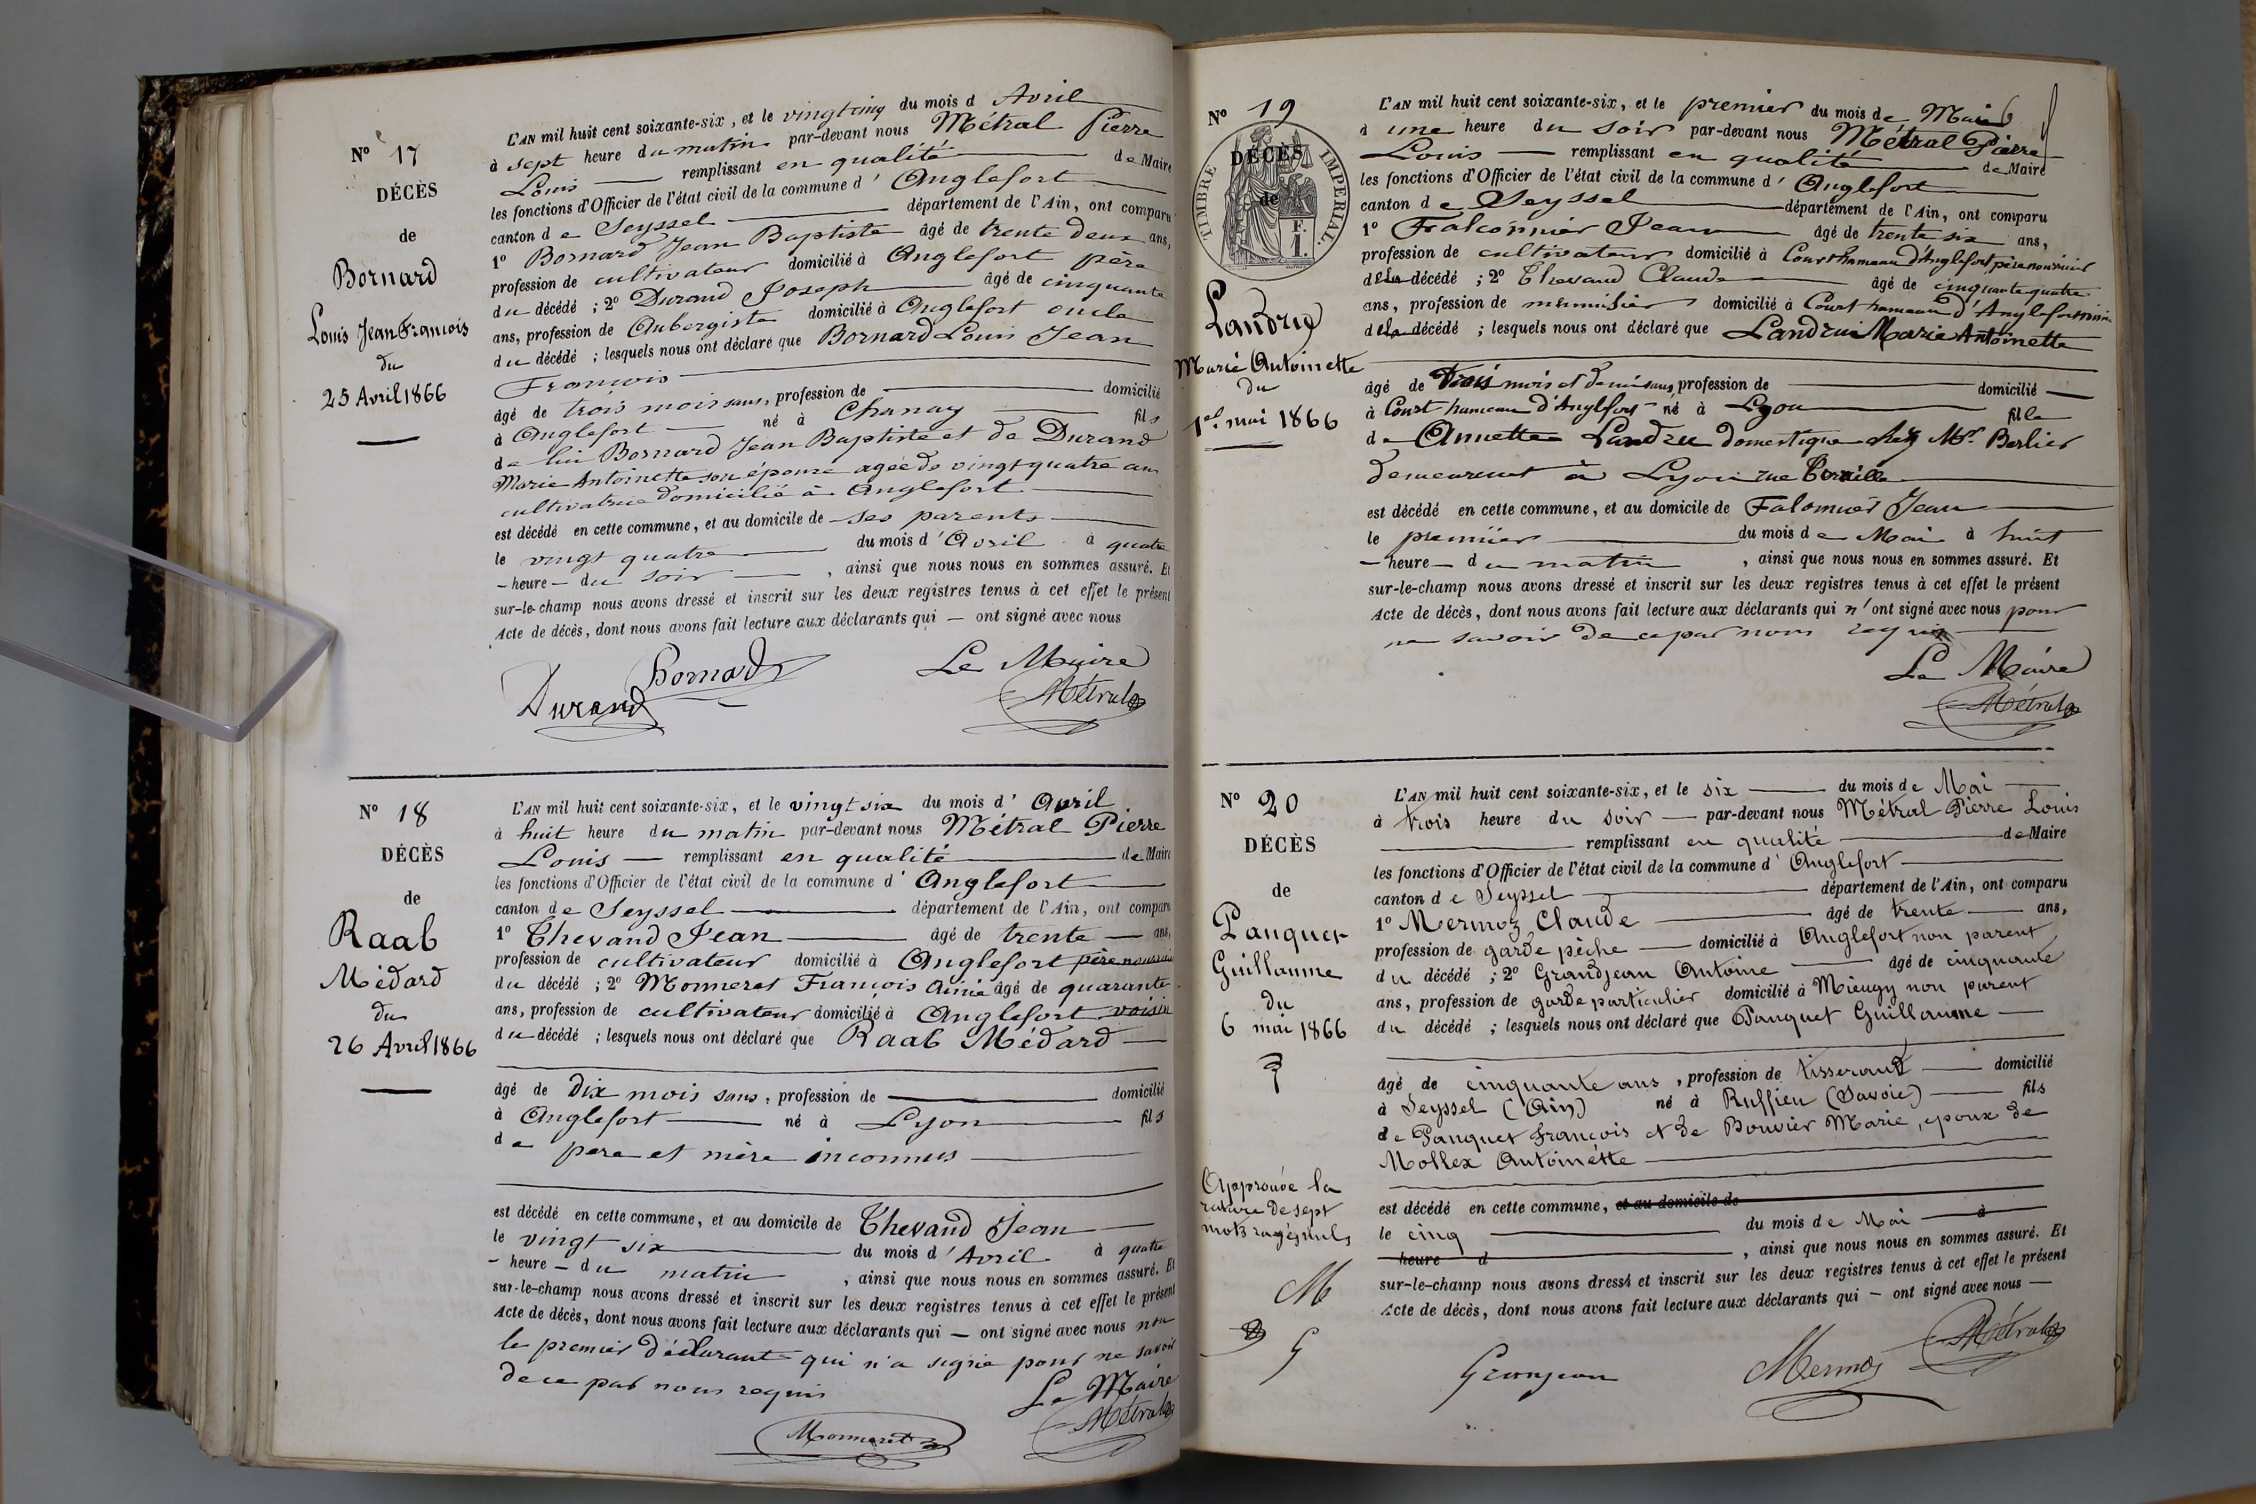 N° 17
DÉCÈS
de
Bornard
Louis Jean François
du
25 Avril 1866
L'AN mil huit cent soixante-six, et le vingt cinq du mois d Avril
à sept heure du matin par-devant nous Métral Pierre
Louis remplissant en qualité de Maire
les fonctions d'Officier de l'état civil de la commune d' Anglefort
canton de Seyssel département de l'Ain, ont comparu
1° Bornard Jean Baptiste âgé de trente deux ans,
profession de cultivateur domicilié à Anglefort père
du décédé ; 2° Durand Joseph âgé de cinquante
ans, profession de Aubergiste domicilié à Anglefort oncle
du décédé ; lesquels nous ont déclaré que Bornard Louis Jean
François
âgé de trois mois ans, profession de domicilié
à Anglefort né à Chanay fils
de lui Bornard Jean Baptiste et de Durand
Marie Antoinette son épouse agée de vingt quatre ans
cultivatrice domicilié à Anglefort
est décédé en cette commune, et au domicile de ses parents
le vingt quatre du mois d' Avril à quatre
heure du soir , ainsi que nous nous en sommes assuré. Et
sur-le-champ nous avons dressé et inscrit sur les deux registres tenus à cet effet le présent
Acte de décès, dont nous avons fait lecture aux déclarants qui — ont signé avec nous
Bornard Le Maire
Durand Métral
N° 18
DÉCÈS
de
Raab
Médard
du
26 Avril 1866
L'AN mil huit cent soixante-six, et le vingt six du mois d' Avril
à huit heure du matin par-devant nous Métral Pierre
Louis — remplissant en qualité de Maire
les fonctions d'Officier de l'état civil de la commune d' Anglefort
canton de Seyssel département de l'Ain, ont comparu
1° Thevand Jean âgé de trente — ans,
profession de cultivateur domicilié à Anglefort père nourricier
du décédé ; 2° Monneret François Aimé âgé de quarante
ans, profession de cultivateur domicilié à Anglefort voisin
du décédé ; lesquels nous ont déclaré que Raab Médard
âgé de Dix mois sans, profession de domicilié
à Anglefort né à Lyon fils
de père et mère inconnus
est décédé en cette commune, et au domicile de Thevand Jean
le vingt six du mois d' Avril à quatre
- heure - du matin , ainsi que nous nous en sommes assuré. Et
sur-le-champ nous avons dressé et inscrit sur les deux registres tenus à cet effet le présent
Acte de décès, dont nous avons fait lecture aux déclarants qui — ont signé avec nous non
le premier déclarant qui n'a signé pour ne savoir
de ce par nous requis Le Maire
Monneret Métral
N° 19
TIMBRE IMPÉRIAL.
DÉCÈS
de
F.
1.
Landru
Marie Antoinette
du
1er mai 1866
L'AN mil huit cent soixante-six, et le premier du mois de Mai
à une heure du soir par-devant nous Métral Pierre
Louis — remplissant en qualité de Maire
les fonctions d'Officier de l'état civil de la commune d' Anglefort
canton de Seyssel département de l'Ain, ont comparu
1° Falconnier Jean âgé de trente six ans,
profession de cultivateur domicilié à Court hameau d'Anglefort père nourricier
de la décédé ; 2° Thevand Claude âgé de cinquante quatre
ans, profession de menuisier domicilié à Court hameau d'Anglefort voisin
de la décédé ; lesquels nous ont déclaré que Landru Marie Antoinette
âgé de trois mois et demi ans, profession de domicilié
à Court hameau d'Anglefort né à Lyon fille
de Annette Landru domestique chez Mr. Berlier
demeurent à Lyon rue
est décédé en cette commune, et au domicile de Falconnier Jean
le premier du mois de Mai à huit
- heure - du matin , ainsi que nous nous en sommes assuré. Et
sur-le-champ nous avons dressé et inscrit sur les deux registres tenus à cet effet le présent
Acte de décès, dont nous avons fait lecture aux déclarants qui n'ont signé avec nous pour
ne savoir de ce par nous requis
Le Maire
Métral
N° 20
DÉCÈS
de
Panquet
Guillaume
du
6 mai 1866
Approuvée la
rature de sept
mots rayés nuls
M
G
L'AN mil huit cent soixante-six, et le six du mois de Mai
à trois heure du soir — par-devant nous Métral Pierre Louis
remplissant en qualité de Maire
les fonctions d'Officier de l'état civil de la commune d' Anglefort
canton de Seyssel département de l'Ain, ont comparu
1° Mermoz Claude âgé de trente ans,
profession de garde pêche — domicilié à Anglefort non parent
du décédé ; 2° Grandjean Antoine âgé de cinquante
ans, profession de garde particulier domicilié à Mieugy non parent
du décédé ; lesquels nous ont déclaré que Panquet Guillaume
âgé de cinquante ans, profession de tisserant domicilié
à Seyssel (Ain) né à Ruffieu (Savoie) fils
de Panquet François et de Bouvier Marie, epoux de
Mollex Antoinette
est décédé en cette commune, et au domicile de
le cinq du mois de Mai à
heure d , ainsi que nous nous en sommes assuré. Et
sur-le-champ nous avons dressé et inscrit sur les deux registres tenus à cet effet le présent
Acte de décès, dont nous avons fait lecture aux déclarants qui — ont signé avec nous
Métral
Grangean Mermoz